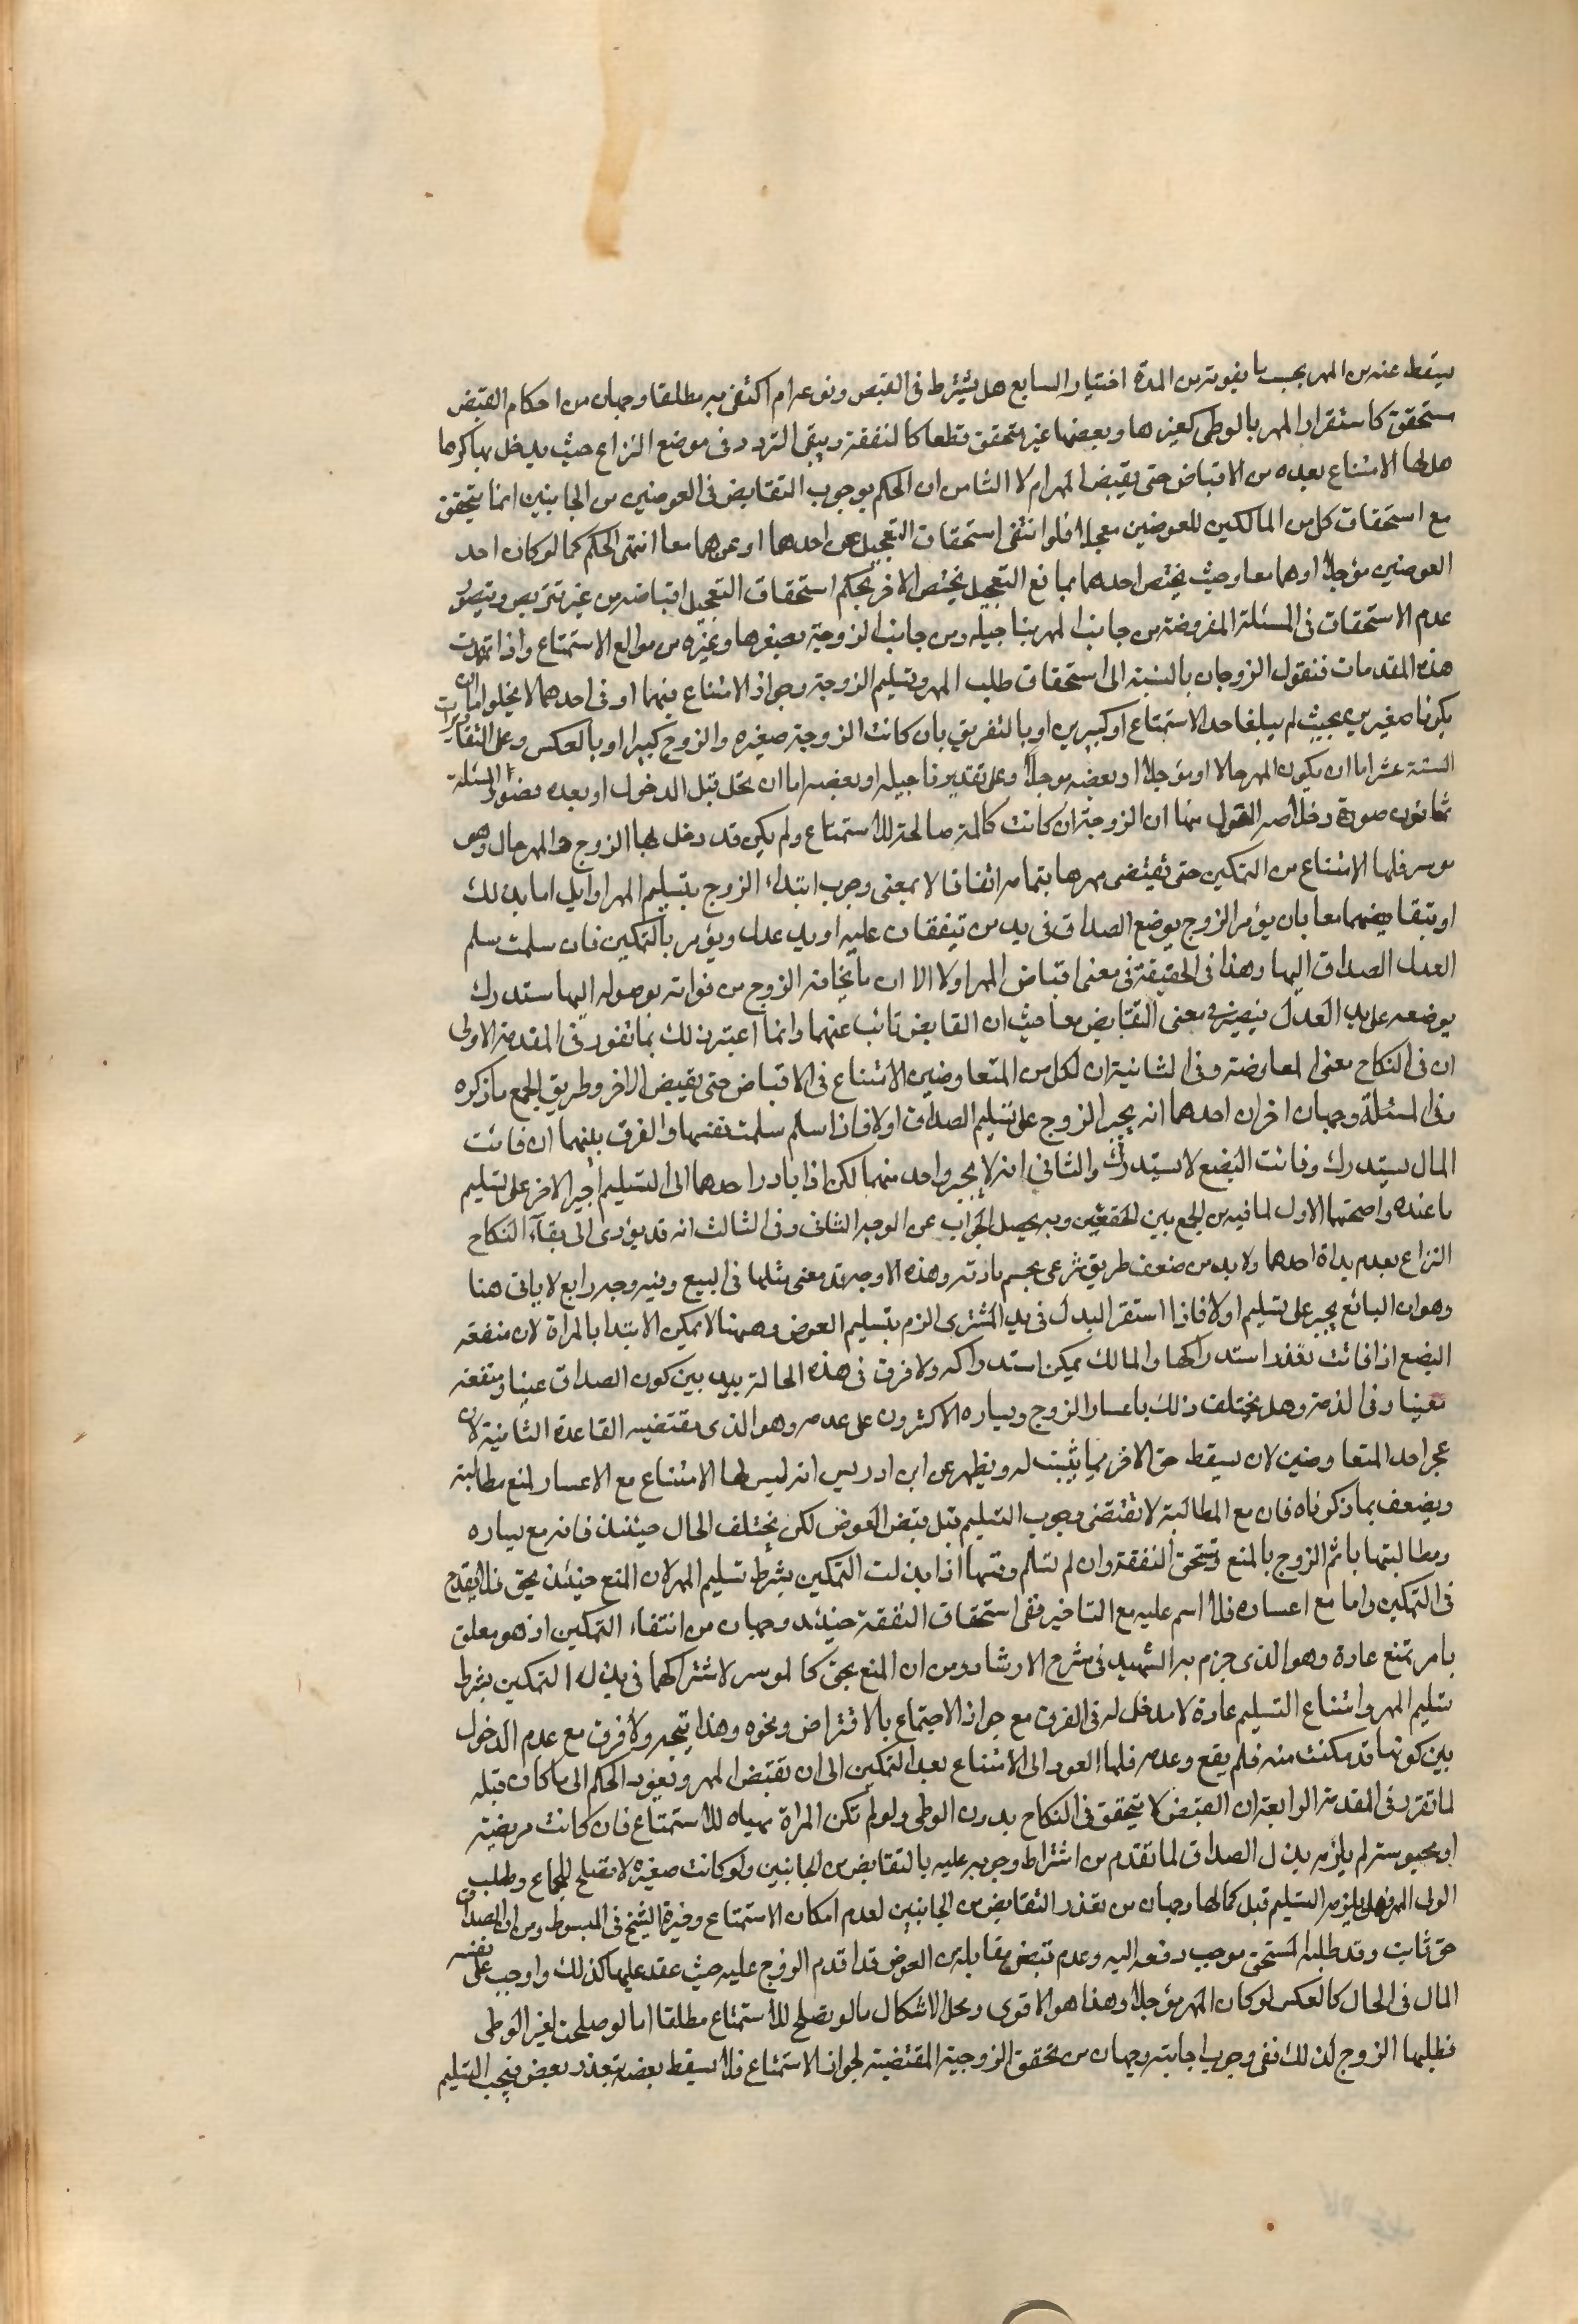 يسقط عنه من المهر بحسب ما يفوته من المدة اختيارا السابع هل يشترط فى القبض وقوعه ام اكتفى به مطلقا وجهان من احكام القبض
متحقق كاستقرار المهر بالوطى كغيرها وبعضها غير متحقق قطعا كالنفقة ويبقى التردد فى موضع النزاع حيث يدخل بها كرها
هل لها الامتناع بعده من الاقباض حتى يقبض المهر ام لا الثامن ان الحكم بوجوب التقابض فى العوضين من الجانبين انما يتحقق
مع استحقاق كل من المالكين للعوضين معجلا فلو انتفى استحقاق التعجيل عن احدهما او عنهما معا انتفى الحكم كما لو كان احد
العوضين مؤجلا او هما معا وحيث يختص احدهما بمانع التعجيل يختص الاخر بحكم استحقاق التعجيل اقباضه من غير تربص ويتصور
عدم الاستحقاق فى المسئلة المفروضة من جانب المهر بتاجيله ومن جانب الزوجة بصغرها وغيره من موانع الاستمتاع واذا تمهدت
هذه المقدمات فنقول الزوجان بالنسبة الى استحقاق طلب المهر وتسليم الزوجة وجواز الامتناع منهما او فى احدهما لا يخلو اما ان
يكونا صغيرين بحيث لم يبلغا حد الاستمتاع او كبيرين او بالتفريق بان كانت الزوجة صغيره والزوج كبيرا او بالعكس وعلى التقديرات
الستة عشر اما ان يكون المهر حالا او مؤجلا او بعضه موجلا وعلى تقدير تاجيله او بعضه اما ان يحل قبل الدخول او بعده فصور المسئلة
ثمانون صورة وخلاصه القول منها ان الزوجة ان كانت كاملة صالحة للاستمتاع ولم يكن قد دخل بها الزوج والمهر حال وهو
موسر فلها الامتناع من التمكين حتى تقبضى مهرها بتمامه اتفاقا لا بمعنى وجوب ابتداء الزوج بتسليم المهر اوايل اما بذلك
او بتقابضهما معا بان يؤمر الزوج بوضع الصداق فى يد من يتفقان عليه او يد عدل ويؤمر بالتمكين فان سلمت سلم
العدل الصداق اليها وهذا فى الحقيقة فى معنى اقباض المهر اولا الا ان ما يخافه الزوج من فواته بوصوله اليها ستدرك
بوضعه على يد العدل فيصير فى معنى التقابض معا حيث ان القابض نائب عنهما وانما اعتبر ذلك بما تقرر فى المقدمة الاولى
ان فى النكاح معنى المعاوضة وفى الثانية ان لكل من المتعاوضين الامتناع فى الاقباض حتى يقبض الاخر وطريق الجمع ما ذكره
وفى المسئلة وجهان اخران احدهما انه يجبر الزوج على تسليم الصداق اولا فاذا سلم سلمت نفسها والفرق بينهما ان فائت
المال يستدرك وفائت البضع لا يستدرك والثانى انه لا يجبر واحد منهما لكن اذا بادر احدهما الى التسليم اجبر الاخر على تسليم
ما عنده واصحهما الاول لما فيه من الجمع بين الحقين وبه يحصل الجواب عن الوجه الثانى وفى الثالث انه قد يؤدى الى بقآء النكاح
النزاع بعدم بداة احدهما ولا بد من ضعف طريق شرعى يحسم مادته وهذه الاوجه قد معنى مثلها فى البيع وفيه وجه رابع لا ياتى هنا
وهو ان البائع يجبر على تسليم اولا فاذا استقر البدل فى يد المشترى الزم بتسليم العوض وههنا لا يمكن الابتدا بالمراة لان منفعه
البضع اذا فاتت تعذر استدراكها والمالك يمكن استدراكه ولا فرق فى هذه الحالة بين كون الصداق عينا ومنفعه
تعينا وفى الذمة وهل يختلف ذلك باعسار الزوج ويساره الاكثرون على عدمه وهو الذى يقتضيه القاعدة الثانية لان
عجز احد المتعاوضين لان يسقط حق الاخر مما يثبت له ويظهر عن ابن ادريس انه ليس لها الامتناع مع الاعسار لمنع مطالبته
ويضعف بما ذكرناه فان مع المطالبة لا تقتضى وجوب التسليم قبل قبض العوض لكن يختلف الحال حينئذ فانه مع يساره
ومطالبتها ياثم الزوج بالمنع وتستحق النفقة وان لم تسلم نفسها اذا بذلت التمكين بشرط تسليم المهر لان المنع حينئذ بحق فلا يقدح
فى التمكين واما مع اعساره فلا اسم عليه مع التاخير ففى استحقاق النفقة حينئذ وجهان من انتفاء التمكين اذ هو معلق
بامر تمتنع عادة وهو الذى جزم به الشهيد فى شرح الارشاد ومن ان المنع بحق كالموسر لاشتراكهما فى بذل التمكين بشرط
تسليم المهر وامتناع التسليم عادة لا مدخل له فى الفرق مع جواز الاجتماع بالاقتراض ونحوه وهذا يتجه ولا فرق مع عدم الدخول
بين كونها قد مكنت منه فلم يقع وعدمه فلها العود الى الامتناع بعد التمكين الى ان تقبض المهر ويعود الحكم الى ما كان قبله
لما تقرر فى المقدمة الرابعة ان القبض لا يتحقق فى النكاح بدون الوطى ولو لم تكن المراة مهياه للاستمتاع فان كانت مريضة
او محبوسة لم يلزمه بذل الصداق لما تقدم من اشتراط وجوبه عليه بالتقابض من الجانبين ولو كانت صغيره لا تصلح للجماع وطلب
الولى المهر فهل يلزمه التسليم قبل كمالها وجهان من تعذر التقابض من الجانبين لعدم امكان الاستمتاع وخيرة الشيخ فى المبسوط ومن ان الصداق
حق ثابت وقد طلبه المستحق موجب دفعه اليه وعدم قبض مقابلة العوض قد اقدم الزوج عليه حيث عقد عليها كذلك واوجب على نفسه
المال فى الحال كالعكس لو كان المهر مؤجلا وهذا هو الاقوى ومحل الاشكال ما لو يصلح للاستمتاع مطلقا اما لو صلحت لغير الوطى
فطلبها الزوج لذلك ففى وجوب اجابته وجهان من تحقق الزوجية المقتضية لجواز الاستمتاع فلا يسقط بعضه بتعذر بعض فيجب التسليم